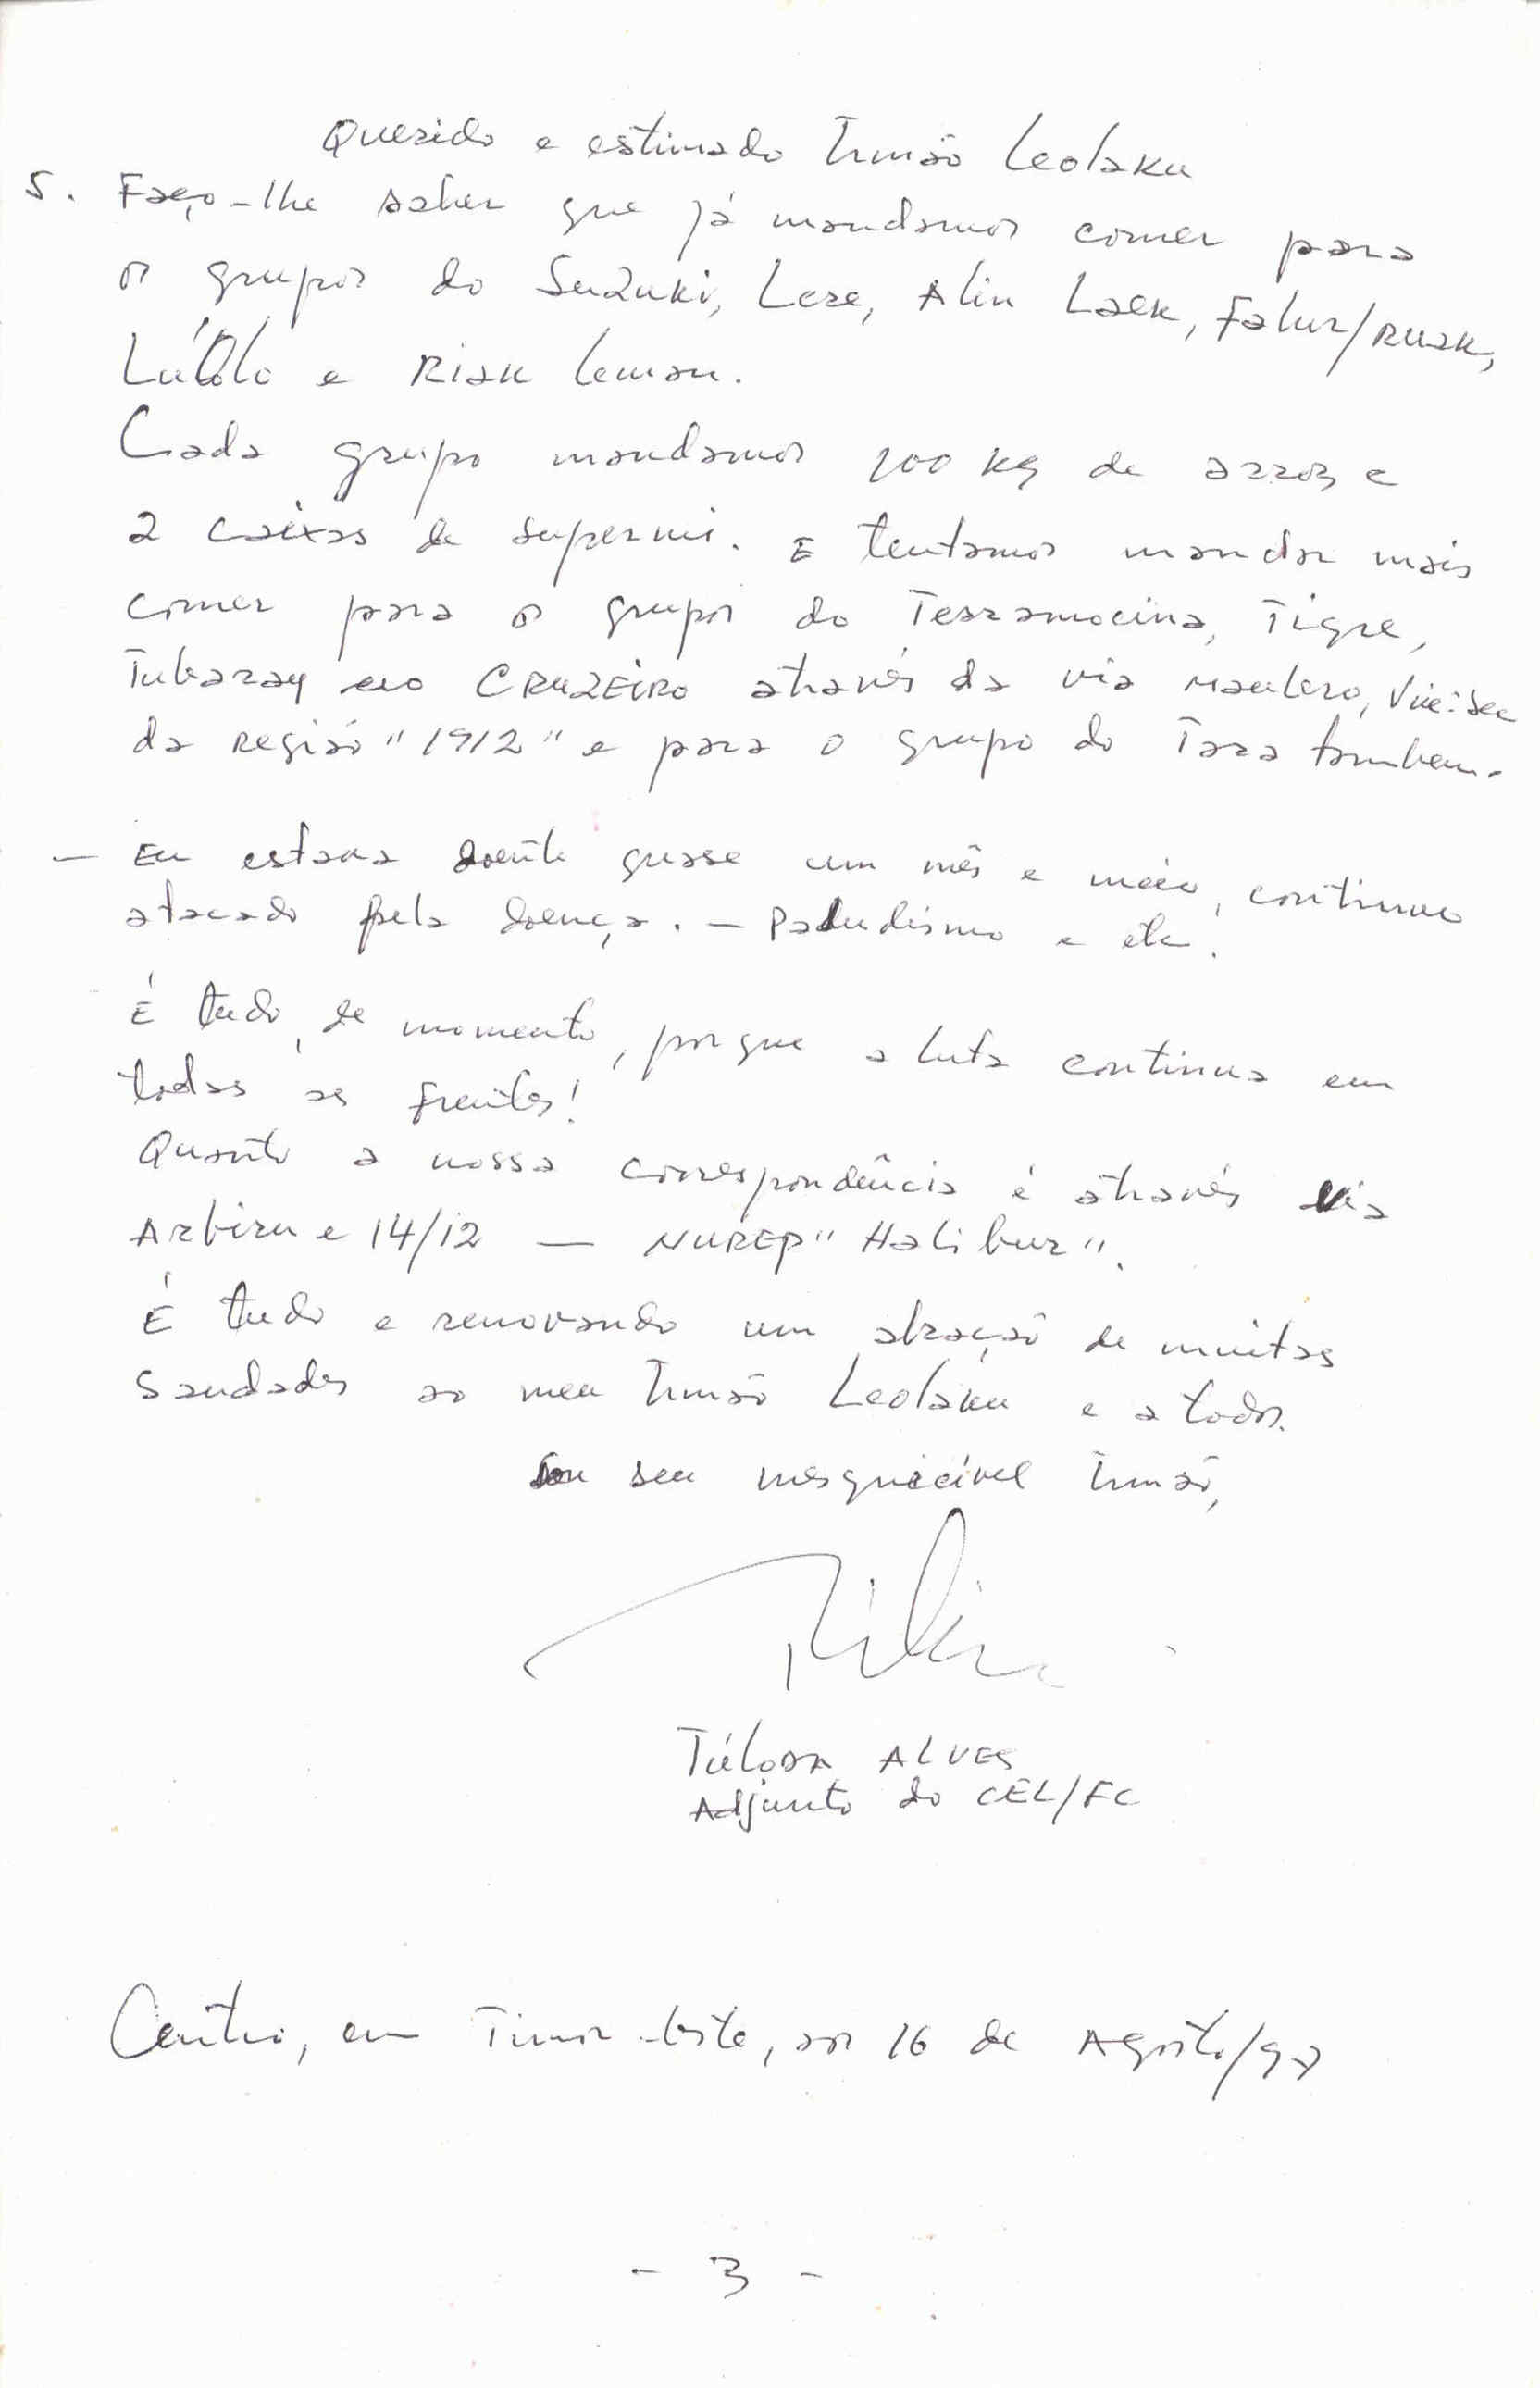 Querido e estimado Irmão Leolaku
5. Faço-lhe saber que já mandamos comer para
os grupos do Suzuki, Lere, Alin Laek, Falur/Ruak,
Lú Olo e Riak Leman.
Cada grupo mandamos 100 kg de arroz e
2 caixas de supermi. E tentamos mandar mais
comer para os grupos do Terramocina, Tigre,
Tubaray e o CRUZEIRO através da via Maulero, Vice-Sec
da região "1912" e para o grupo do Tara tambem.
— Eu estava doente quase um mês e meio, continuo
atacado pela doença. — Paludismo e etc.
É tudo, de momento, porque a luta continua em
todas as frentes!
Quanto a nossa correspondência é através via
Arbiru e 14/12 — NUREP "Halibur".
É tudo e renovando um abração de muitas
saudades ao meu Irmão Leolaku e a todos.
Sou seu inesquecível Irmão,
Túloda ALVES
Adjunto do CEL/FC
Centro, em Timor-Leste, aos 16 de Agosto/97
- 3 -